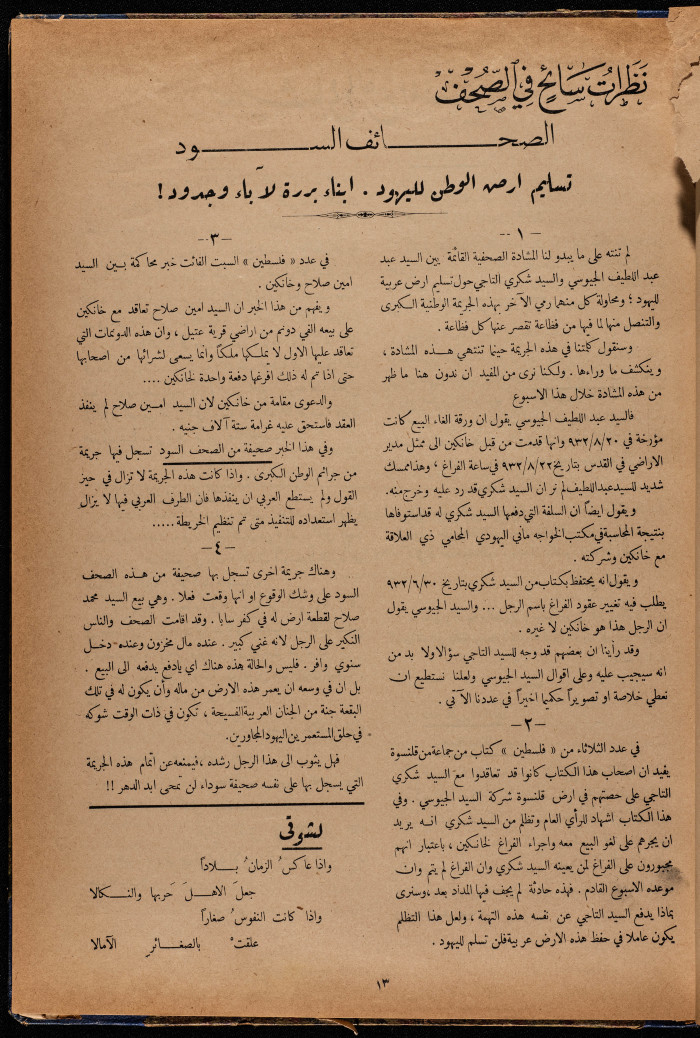 نظرات سائح في الصحف
الصحائف السود
تسليم ارض الوطن لليهود . ابناء بررة لآباء وجدود !
-١-
لم تنته على ما يبدو لنا المشادة الصحفية القائمة بين السيد عبد
عبد اللطيف الجيوسي والسيد شكري التاجي حول تسليم ارض عربية
لليهود ؛ ومحاولة كل منهما رمي الآخر بهذه الجريمة الوطنية الكبرى
والتنصل منها لما فيها من فظاعة تقصر عنها كل فظاعة .
وسنقول كلمتنا في هذه الجريمة حينما تنتهي هذه المشادة ،
وينكشف ما وراءها . ولكننا نرى من المفيد ان ندون هنا ما ظهر
من هذه المشادة خلال هذا الاسبوع
فالسيد عبد اللطيف الجيوسي يقول ان ورقة الغاء البيع كانت
مؤرخة في ٩٣٢/٨/٢٠ وانها قدمت من قبل خانكين الى ممثل مدير
الاراضي في القدس بتاريخ ٩٣٢/٨/٢٢ في ساعة الفراغ ؛ وهذا مسك
شديد للسيد عبد اللطيف لم نر ان السيد شكري قد رد عليه وخرج منه.
ويقول ايضاً ان السلفة التي دفعها السيد شكري له قد استوفاها
بنتيجة المحاسبة في مكتب الخواجه ماني اليهودي المحامي ذي العلاقة
مع خانكين وشركته .
ويقول انه يحتفظ بكتاب من السيد شكري بتاريخ ٩٣٢/٦/٣٠
يطلب فيه تغيير عقود الفراغ باسم الرجل ... والسيد الجيوسي يقول
ان الرجل هذا هو خانكين لا غيره .
وقد رأينا ان بعضهم قد وجه للسيد التاجي سؤالا ولا بد من
انه سيجيب عليه وعلى اقوال السيد الجيوسي ولعلنا نستطيع ان
نعطي خلاصة او تصويراً حكيما اخيراً في عددنا الآتي .
-٢-
في عدد الثلاثاء من « فلسطين » كتاب من جماعة من قلنسوة
يفيد ان اصحاب هذا الكتاب كانوا قد تعاقدوا مع السيد شكري
التاجي على حصتهم في ارض قلنسوة شركة السيد الجيوسي . وفي
هذا الكتاب اشهاد للرأي العام وتظلم من السيد شكري انه يريد
ان يجرهم على لغو البيع معه واجراء الفراغ لخانكين ، باعتبار انهم
مجبورون على الفراغ لمن يعينه السيد شكري وان الفراغ لم يتم وان
موعده الاسبوع القادم . فهذه حادثة لم يجف فيها المداد بعد ، وسنرى
بماذا يدفع السيد التاجي عن نفسه هذه التهمة ، ولعل هذا التظلم
يكون عاملا في حفظ هذه الارض عربية فلن تسلم لليهود .
-٣-
في عدد « فلسطين » السبت الفائت خبر محاكمة بين السيد
امين صلاح وخانكين .
ويفهم من هذا الخبر ان السيد امين صلاح تعاقد مع خانكين
على بيعه الفي دونم من اراضي قرية عتيل ، وان هذه الدونمات التي
تعاقد عليها الاول لا يملكها ملكاً وانما يسعى لشرائها من اصحابها
حتى اذا تم له ذلك افرغها دفعة واحدة لخانكين ....
والدعوى مقامة من خانكين لان السيد امين صلاح لم ينفذ
العقد فاستحق عليه غرامة ستة آلاف جنيه .
وفي هذا الخبر صحيفة من الصحف السود تسجل فيها جريمة
من جرائم الوطن الكبرى . واذا كانت هذه الجريمة لا تزال في حيز
القول ولم يستطع العربي ان ينفذها فان الطرف العربي فيها لا يزال
يظهر استعداده للتنفيذ متى تم تنظيم الخريطة .....
-٤-
وهناك جريمة اخرى تسجل بها صحيفة من هذه الصحف
السود على وشك الوقوع او انها وقعت فعلا . وهي بيع السيد محمد
صلاح لقطعة ارض له في كفر سابا . وقد اقامت الصحف والناس
النكير على الرجل لانه غني كبير . عنده مال مخزون وعنده دخل
سنوي وافر . فليس والحالة هذه هناك اي يادفع يدفعه الى البيع .
بل ان في وسعه ان يعمر هذه الارض من ماله وأن يكون له في تلك
البقعة جنة من الجنان العربية الفسيحة ، تكون في ذات الوقت شوكه
في حلق المستعمرين اليهود المجاورين.
فهل يثوب الى هذا الرجل رشده ، فيمنعه عن اتمام هذه الجريمة
التي يسجل بها على نفسه صحيفة سوداء لن تمحى ابد الدهر !!
لشوقي
واذا عاكسُ الزمانُ بلاداً
جعلَ الاهلَ حَربها والنكالا
واذا كانت النفوسُ صغاراً
علقتْ بالصغائرِ الآمالا
١٣